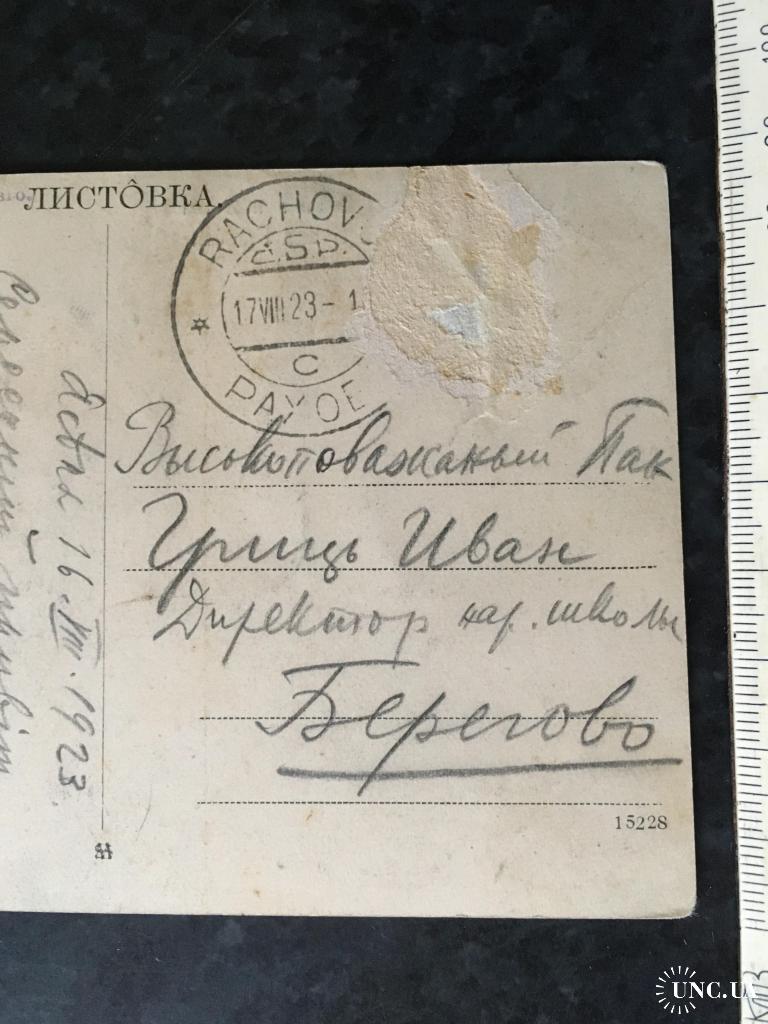 ЛИСТÔВКА.
RACHOV
Č.S.P.
17 VIII 23 - 1
C
РАХОВ
Высокоповажаный Пан
Гриць Иван
Директор нар. школы
Берегово
16. VIII. 1923.
15228
UNC.UA